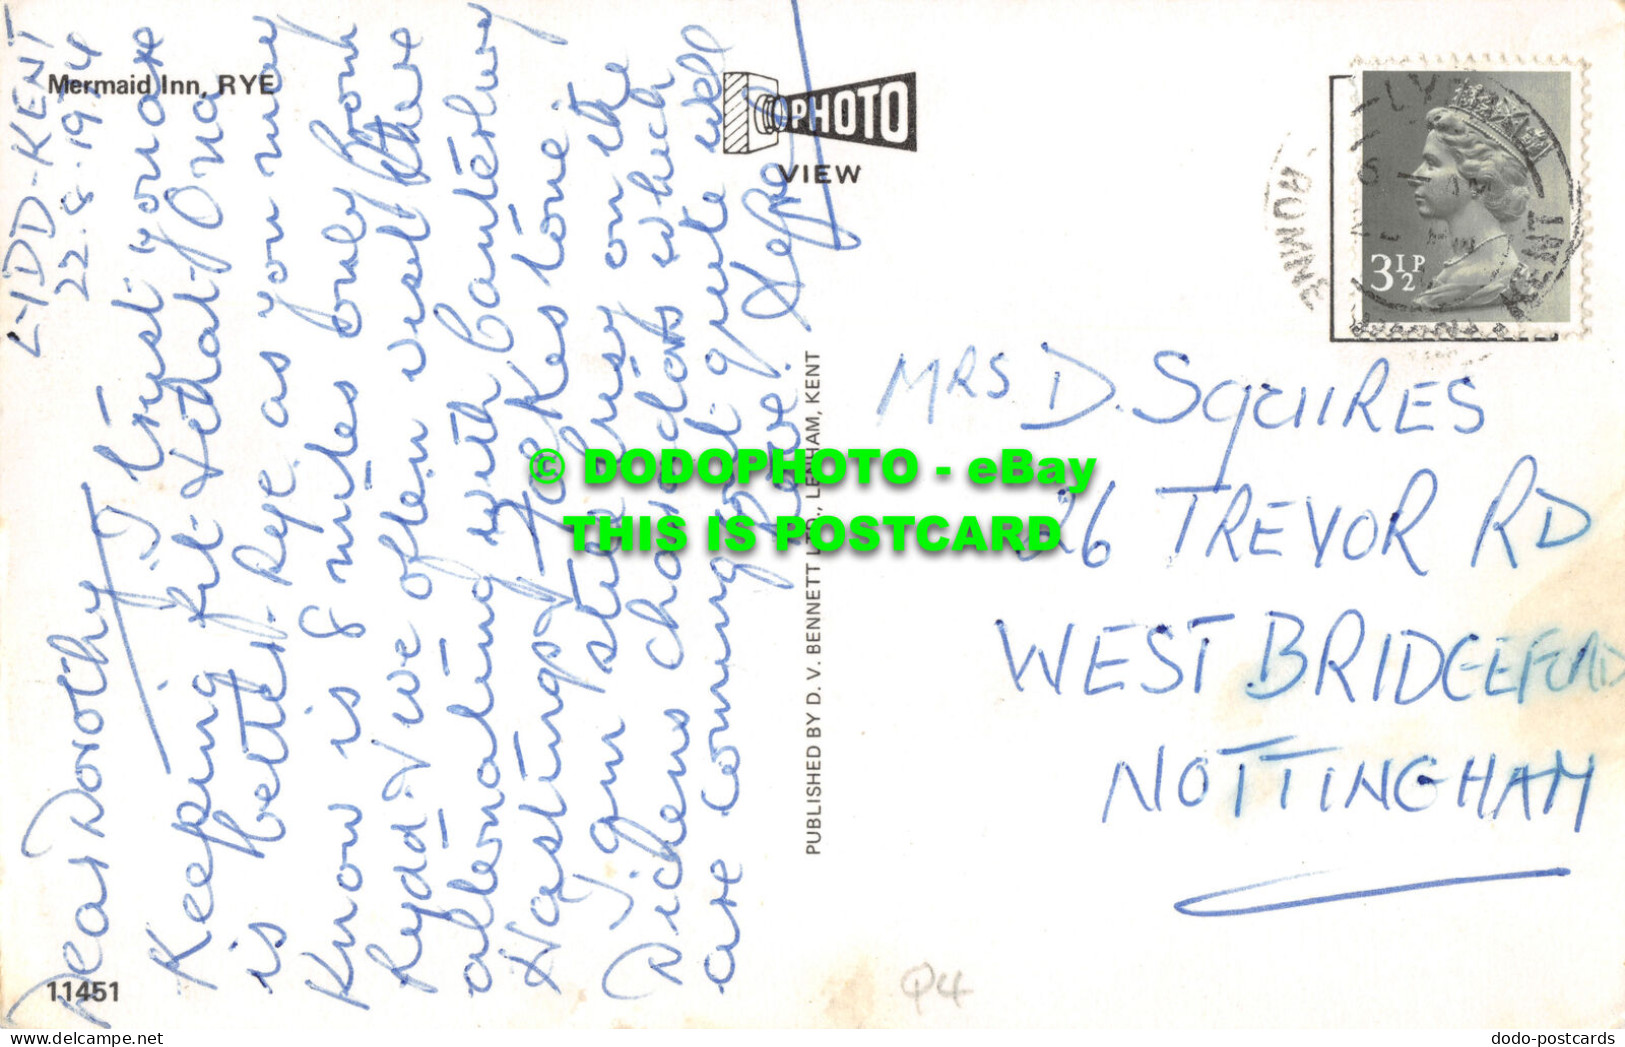 Mermaid Inn, RYE
LYDD-KENT
22.8.1974
Dear Dorothy
I trust you are
Keeping fit & that Ona
is better. Rye as you may
Know is 8 miles only from
Lydd & we often visit there
alternating with Canterbury
Hastings & Folkestone.
I am still busy on the
Dickens characters which
are coming out quite well
PHOTO
VIEW
PUBLISHED BY D. V. BENNETT LTD., KENT
11451
3½P
ROMNEY
KENT
MRS D. SQUIRES
26 TREVOR RD
WEST BRIDGEFORD
NOTTINGHAM
Q4
© DODOPHOTO - eBay
THIS IS POSTCARD
dodo-postcards